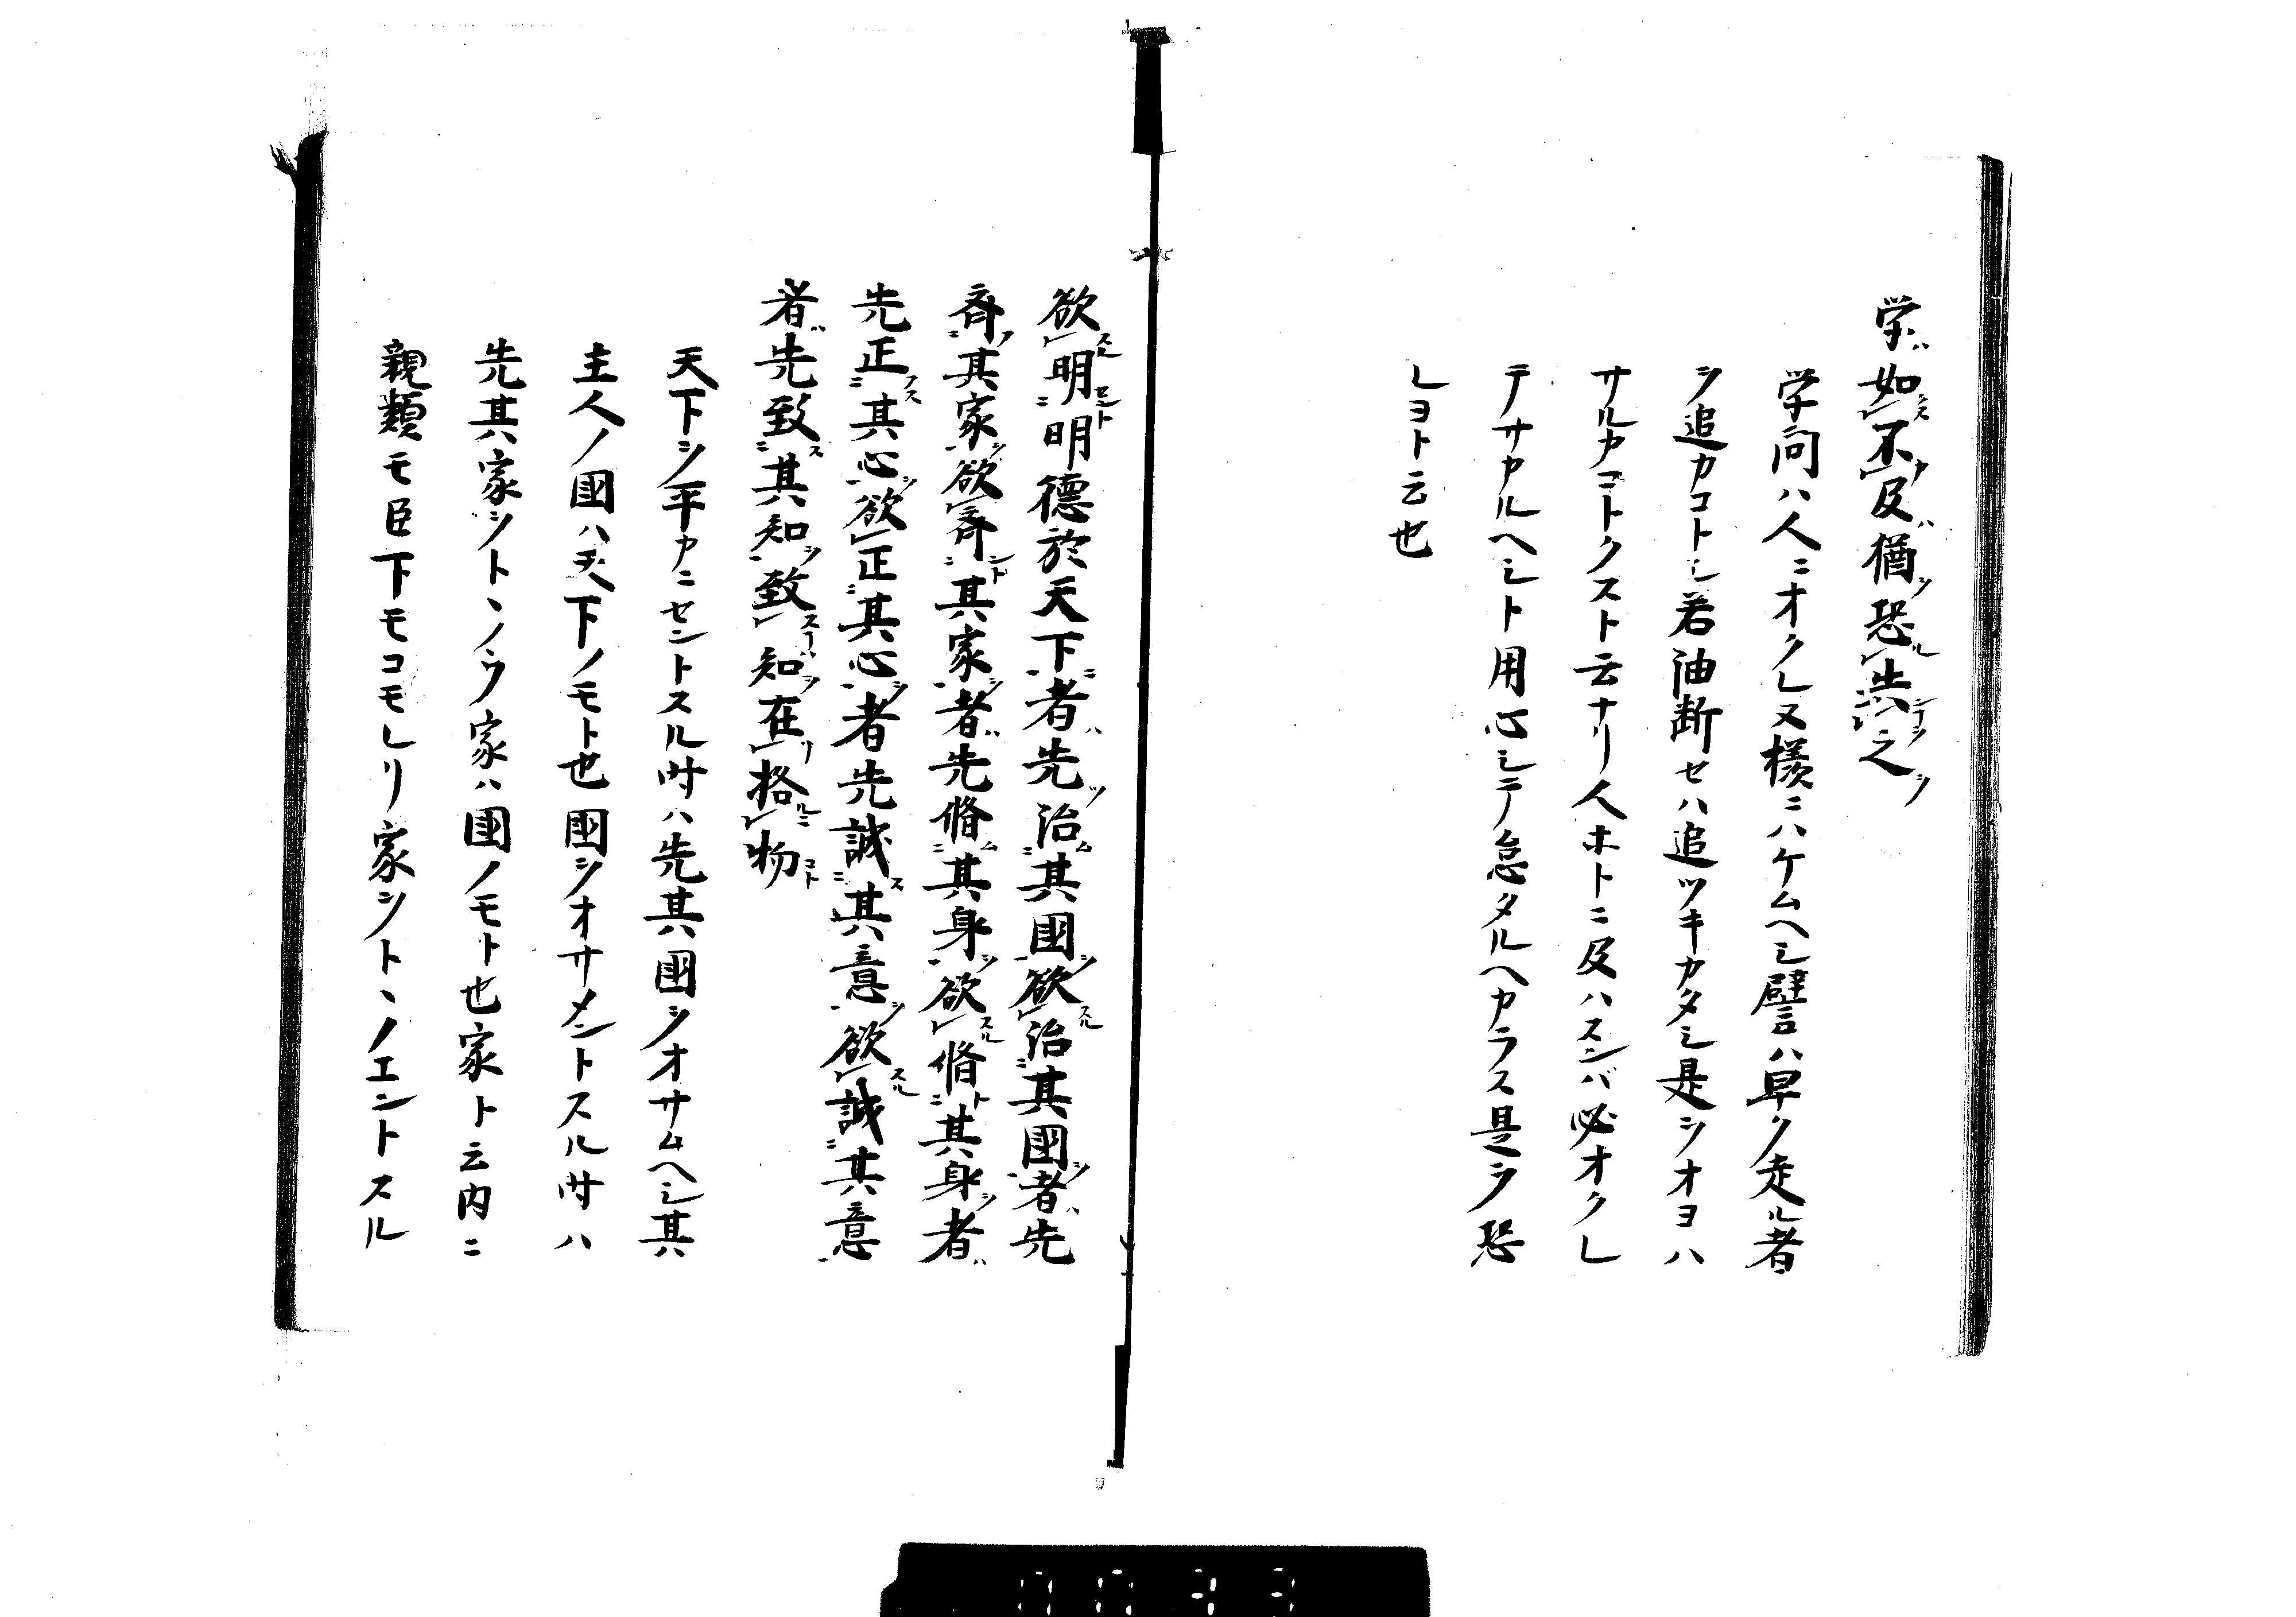 学如不及猶恐失之
学问ハ人ニオクレヌ様ニハケムヘシ譬ハ早ク走ル者
ヲ追カコトシ若油断セハ追ツキカタシ是ヲオヨハ
サルカコトクスト云ナリ人ホトニ及ハスンバ必オクレ
テサカルヘシト用心シテ怠タルヘカラス是ヲ恐
レヨト云也
欲明明德於天下者先治其國欲治其國者先
齊其家欲齊其家者先脩其身欲脩其身者
先正其心欲正其心者先誠其意欲誠其意
者先致其知致知在格物
天下ヲ平カニセントスル時ハ先其國ヲオサムヘシ其
主人ノ國ハ天下ノモト也國ヲオサメントスル時ハ
先其家ヲトヽノウ家ハ國ノモト也家ト云内ニ
親類モ臣下モコモレリ家ヲトヽノエントスル